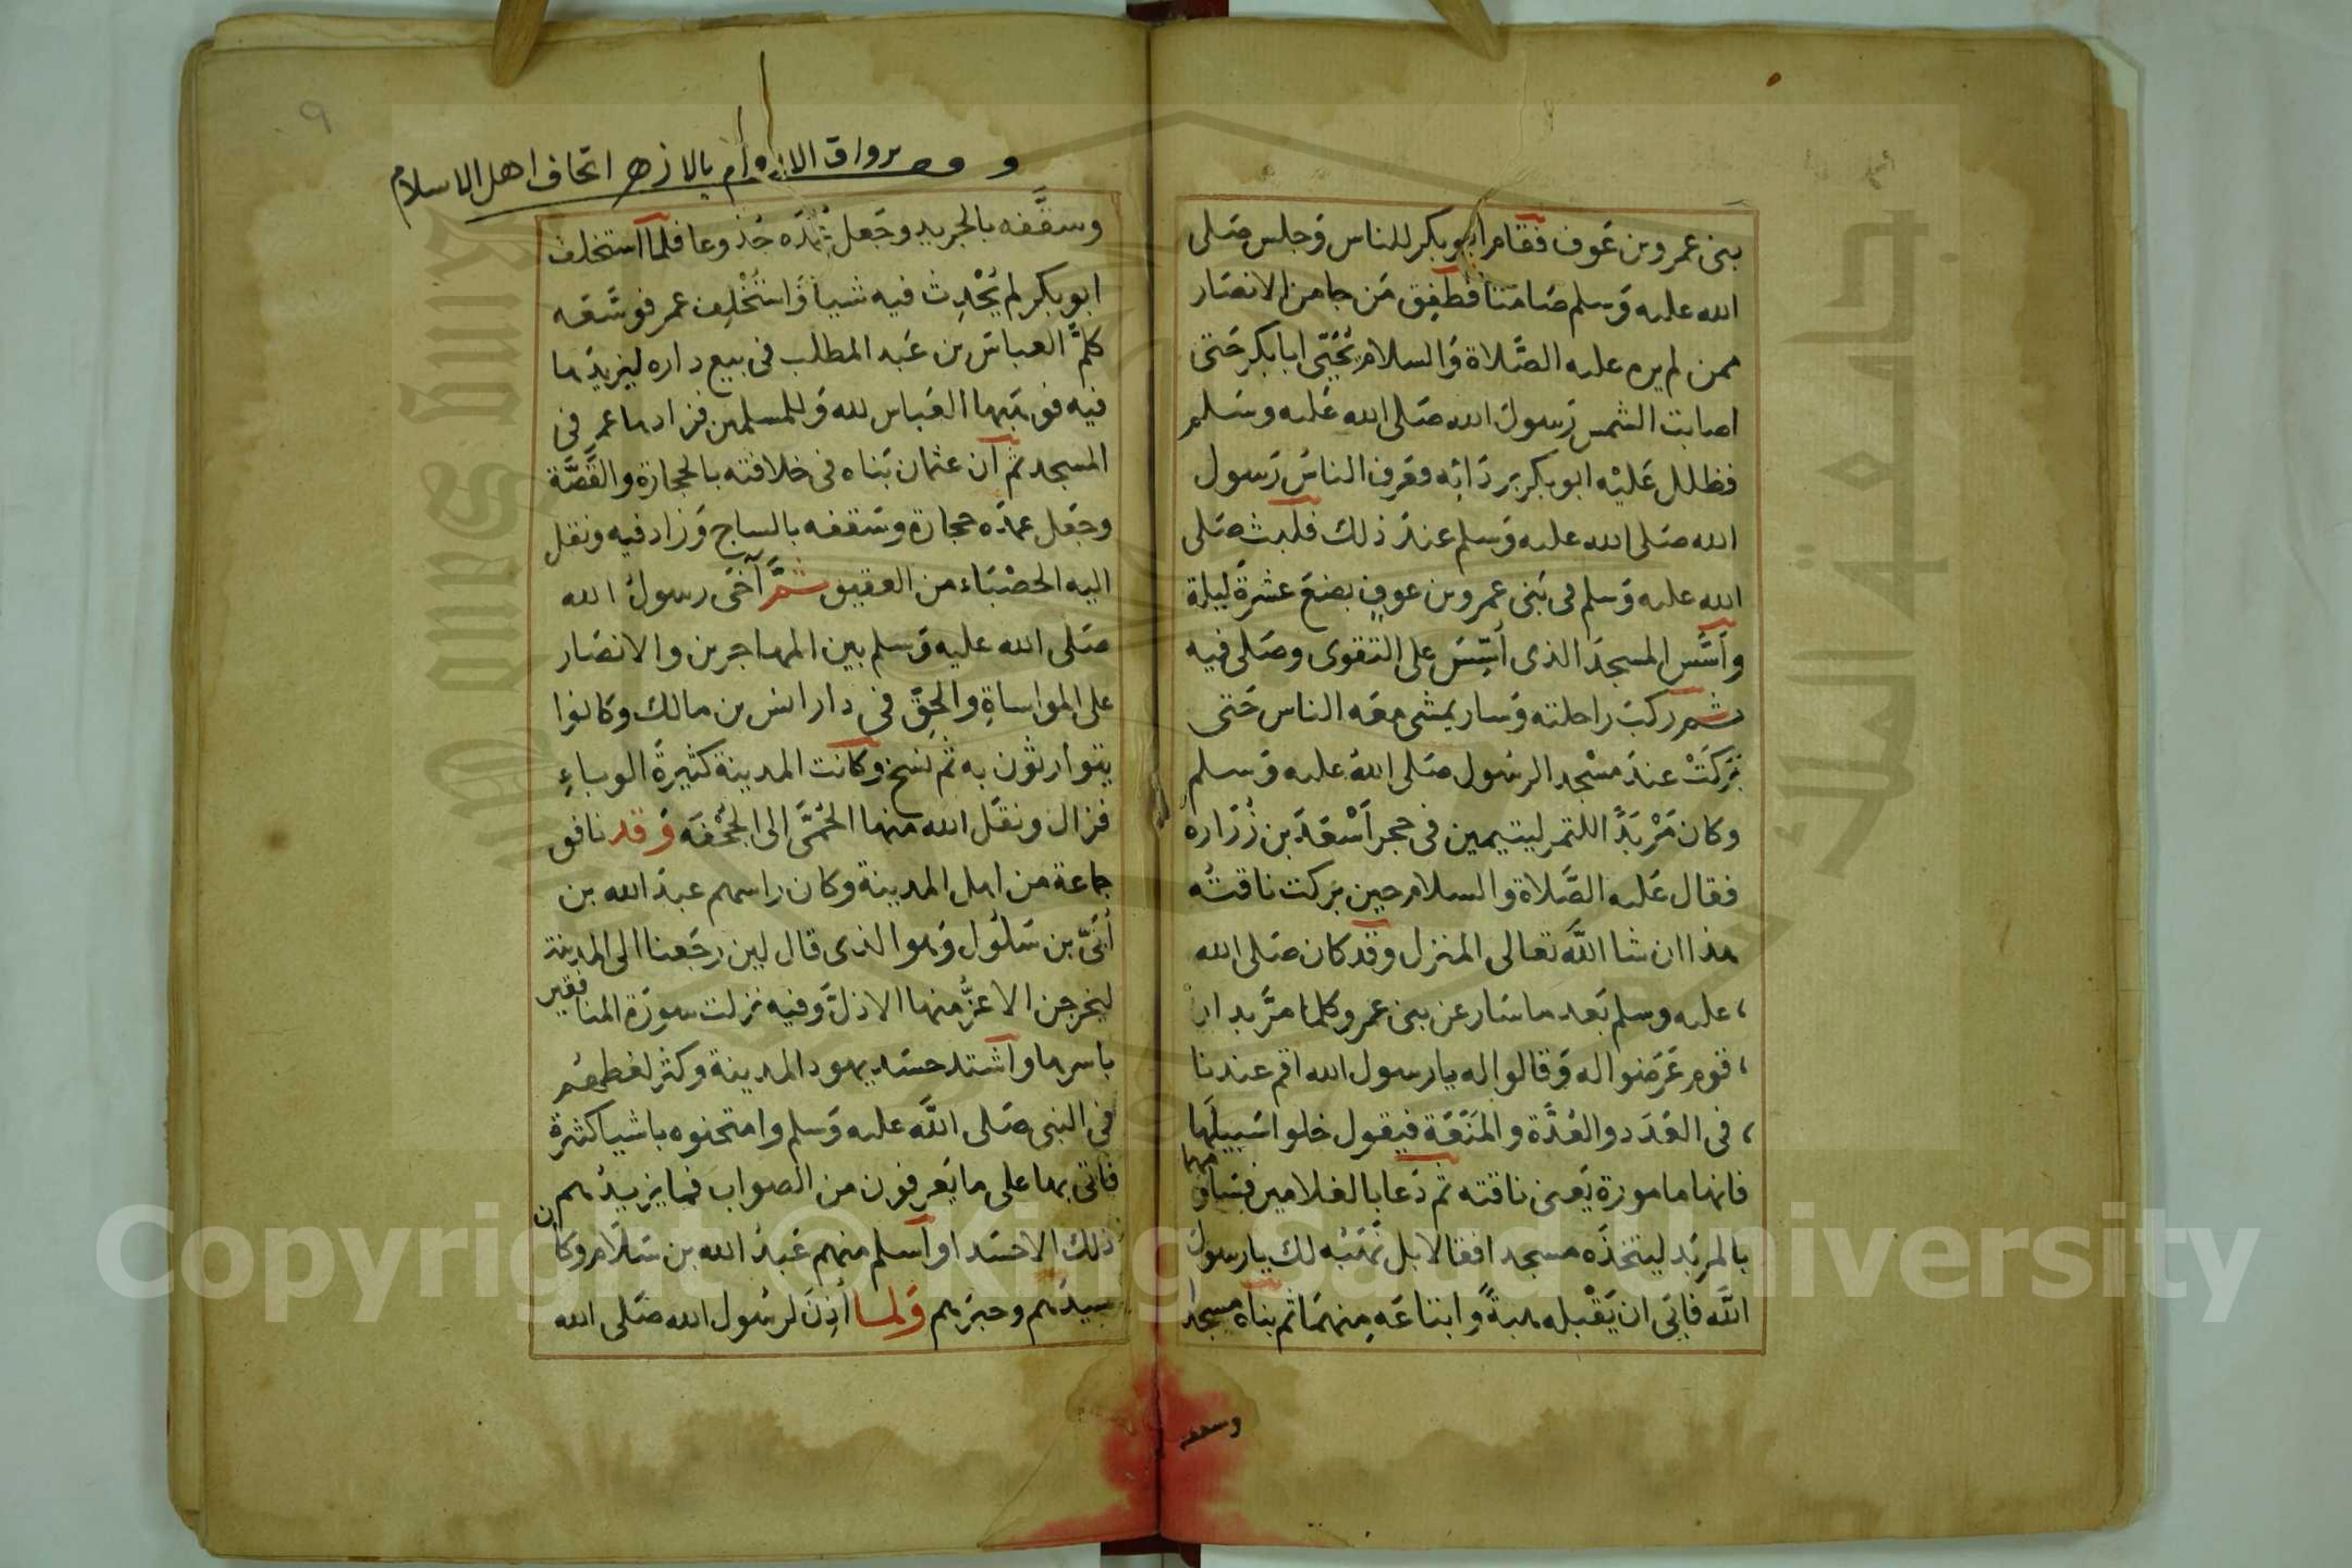 بنى عمرو بن عَوف فقام ابو بكر للناس وَجلس صَلى
الله عليه وَسلم صَامتا فطفِق مَن جا من الانصَار
ممن لم يره عليه الصَّلاة وَالسلام يُحَيّى ابا بكر حَتى
اصابت الشمس رَسولَ الله صَلى الله عَليه وسَلم
فظلل عَليْه ابو بكر بردَائِه فعَرف الناسُ رَسول
الله صَلى الله عليه وَسلم عندَ ذلك فلبث صَلى
الله عليه وَسلم فى بَنى عمرو بن عوفٍ بضعَ عشرةَ ليلة
وأسَّس المسجدَ الذى أسِّسَ على التقوى وصَلى فيه
ثم ركبَ راحلته وَسار يمشى معَه الناس حَتى
بَرَكَتْ عندَ مسْجد الرسُول صَلى اللهُ عليه وَسلم
وكان مَرْبَدًا للتمر ليتيمين فى حجر أسْعَدَ بن زُرَاره
فقال عَليه الصَّلاة والسلام حين بَركت ناقتُه
هذا ان شا اللَّه تعالى المنزل وقد كان صَلى الله
عليه وسلم بَعد ما سَار عن بنى عمرو كلما مرَّ بدار
قوم عَرَضوا له وَقالوا له يا رسول الله اقم عندنا
فى العَدَد والعُدَّة والمَنَعَة فيقول خلوا سَبيلَها
فانها مامورة يَعنى ناقته ثم دَعا بالغلامين فسَاومهما
بالمربَد ليتخذَه مسجدا فقالا بل نَهَبُه لك يا رسول
اللَّه فابَى ان يَقْبله هبةً وَابتاعَه مِنهمَا ثم بناه مسجدا
وسقفه
وقف برواق الاروام بالازهر اتحاف اهل الاسلام
٩
وسقَّفه بالجريد وجَعل عُمُدَه جُذوعا فلما استخلف
ابو بكر لم يُحْدِث فيه شيأ وَاسْتُخْلِف عمر فوسَّعَه
كلَّمَ العباسَ بن عَبد المطلب فى بيع داره ليزيدَها
فيه فوهَبَها العَباس لله وَللمسلمين فزادها عمر فى
المسجد ثم ان عثمان بَناه فى خلافته بالحجارة والقَصَّة
وجَعل عمدَه حجارة وسَقفه بالساج وَزاد فيه ونقل
اليه الحصْبَاء من العقيق ثمَّ آخَى رسولُ الله
صَلى الله عليه وَسلم بين المهاجرين والانصَار
على المواساةِ والحقِ فى دار انس بن مالك وكانوا
يتوارثون به ثم نسخ وكانت المدينة كثيرةَ الوباءِ
فزال ونقَل الله منها الحُمَّى الى الجُحْفَه وَقد نافق
جماعة من اهل المدينة وكان راسهم عبدَ الله بن
أُبَىّ بن سَلُول وَهو الذى قال لين رجَعنا الى المدينة
ليخرجن الاعزُّ منها الاذلَّ وَفيه نزلت سورَة المنافقين
باسرها واشتد حسَد يهود المدينة وكثر لغطهم
فى النبى صَلى اللَّه عليه وَسلم وامتحنوه باشيا كثيرة
فاتى بها على ما يَعرفون من الصواب فما يزيدُهم
ذلك الا حسَدا واسلم منهم عَبدُ الله بن سَلَام وكان
سيدَهم وحبرَهم وَلما أذِنَ لرسُول الله صَلى الله
Copyright © King Saud University